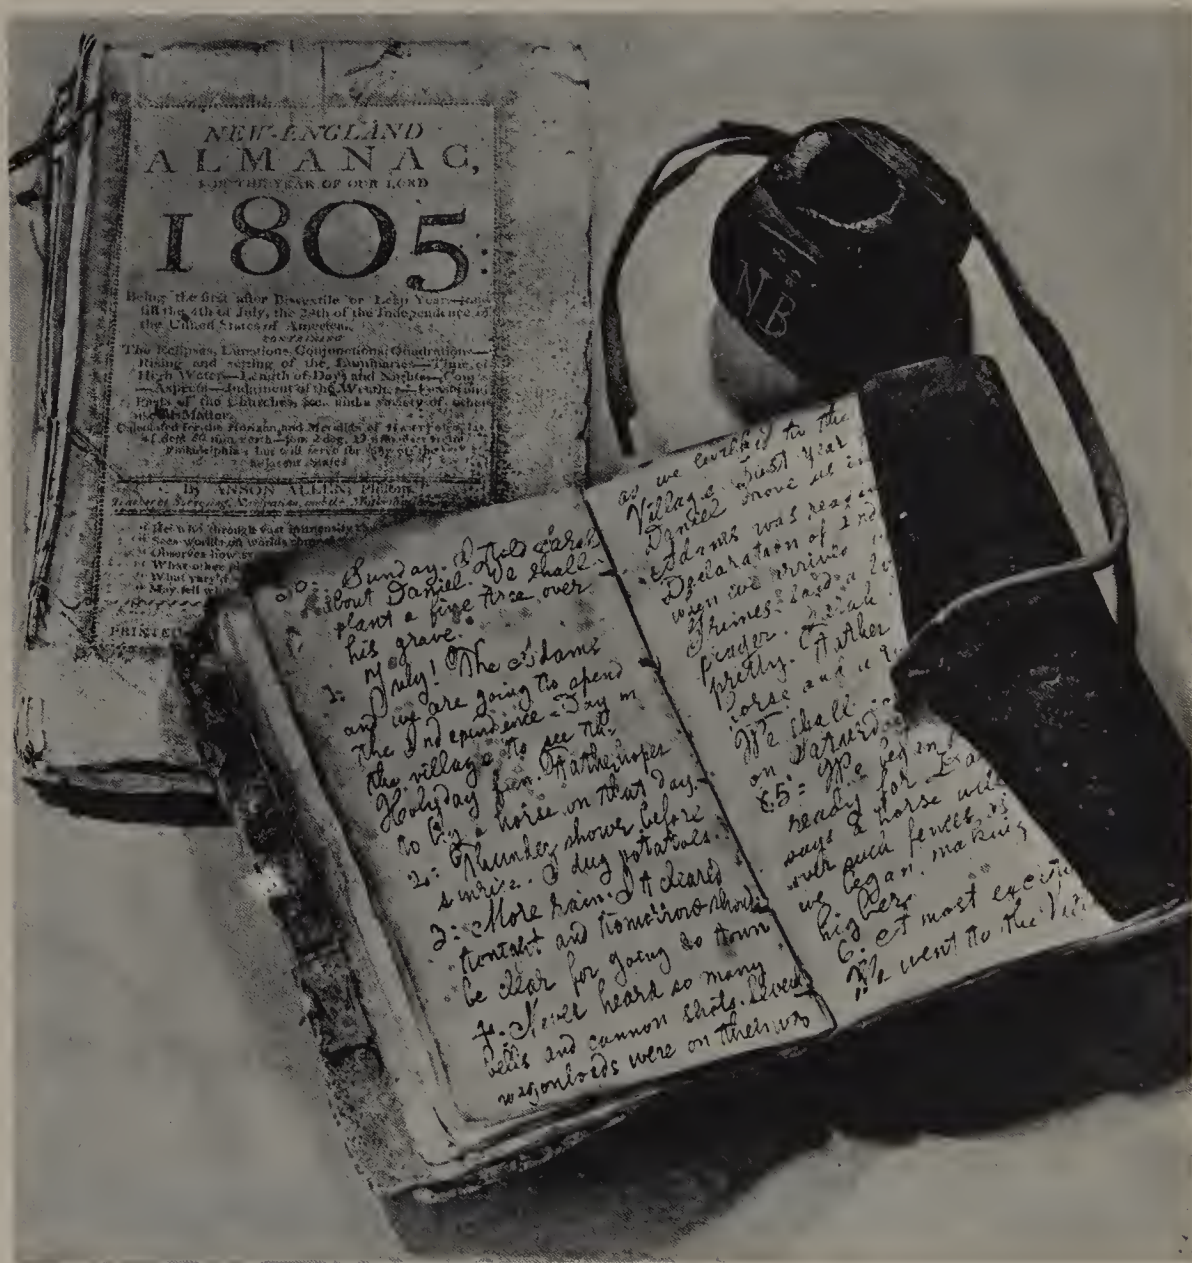 NEW-ENGLAND
ALMANAC,
FOR THE YEAR OF OUR LORD
1805:
Being the first after Bissextile or Leap Year
till the 4th of July, the 29th of the Independence of
the United States of America.
CONTAINING
The Eclipses, Lunations, Conjunctions, Quadrations—
Rising and setting of the Luminaries—Time of
High Water—Length of Days and Nights
—Aspects—Judgment of the
of the Churches, &c. and a variety of other
Matter.
Calculated for the Horizon and Meridian of
Philadelphia but will serve for
adjacent States
BY ANSON ALLEN,
through vast immensity
Sees worlds on worlds
Observes how
What other
What
May tell
PRINTED
NB
30: Sunday. I told Sarah
about Daniel. We shall
plant a fine tree over
his grave.
1: July! The Adams
and we are going to spend
the Independence-Day in
the village to see the
Holyday fun. Father hopes
to buy a horse on that day.
2: Thunder shower before
sunrise. I dug potatoes.
3: More rain. It cleared
tonight and tomorrow should
be clear for going to town
4. Never heard so many
bells and cannon shots.
wagonloads were on their way
as we walked to the
Village. Just year
Daniel drove us in
Adams was reading
Declaration of Ind
when we arrived
Grimes said a
prayer. Sarah
pretty. Father
horse and a
We shall
on Saturd
5: We began
ready for
says a horse will
over such fences, so
we began making
higher
6: A most exciti
We went to the Vill